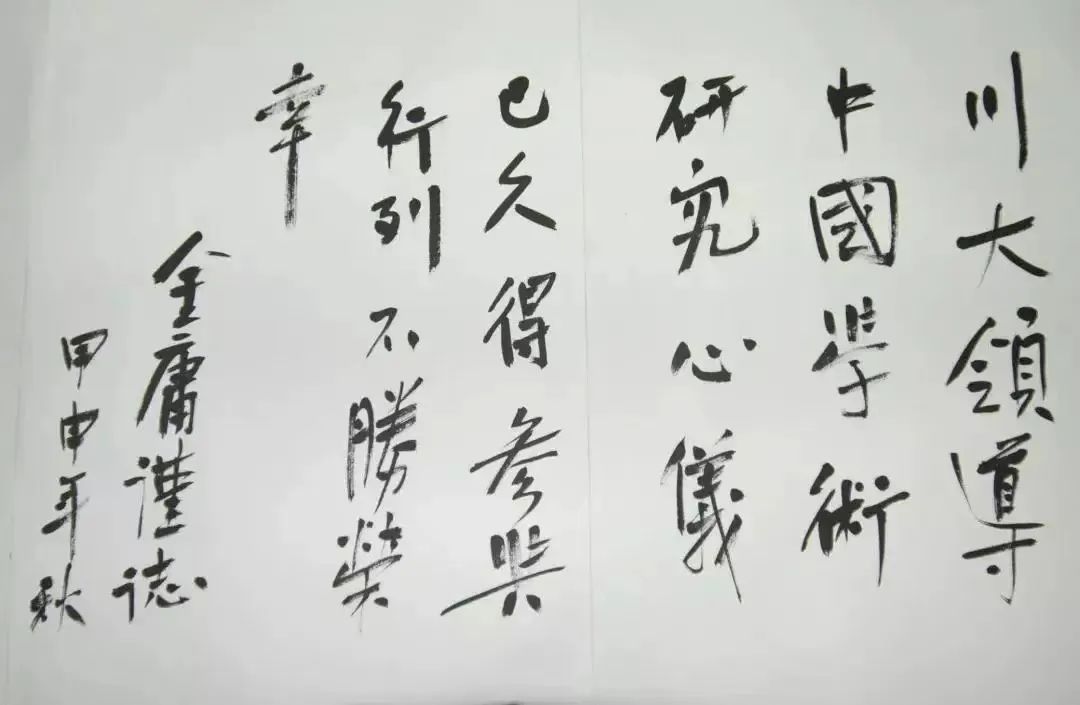 川大領導
中國學術
研究心儀
已久得参與
行列不勝榮
幸
金庸謹誌
甲申年秋